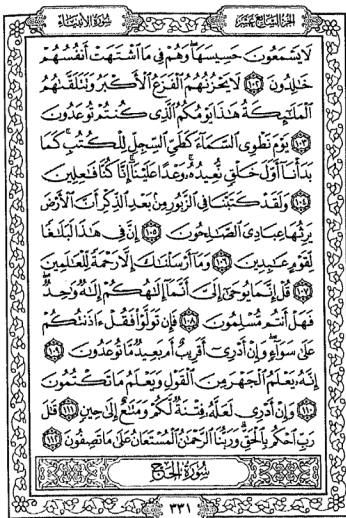 سُورَةُ الأَنبيَاء
الجزء السابع عشر
لَا يَسْمَعُونَ حَسِيسَهَا ۖ وَهُمْ فِي مَا اشْتَهَتْ أَنفُسُهُمْ
خَالِدُونَ ﴿١٠٢﴾ لَا يَحْزُنُهُمُ الْفَزَعُ الْأَكْبَرُ وَتَتَلَقَّاهُمُ
الْمَلَائِكَةُ هَٰذَا يَوْمُكُمُ الَّذِي كُنتُمْ تُوعَدُونَ
﴿١٠٣﴾ يَوْمَ نَطْوِي السَّمَاءَ كَطَيِّ السِّجِلِّ لِلْكُتُبِ ۚ كَمَا
بَدَأْنَا أَوَّلَ خَلْقٍ نُّعِيدُهُ ۚ وَعْدًا عَلَيْنَا ۚ إِنَّا كُنَّا فَاعِلِينَ
﴿١٠٤﴾ وَلَقَدْ كَتَبْنَا فِي الزَّبُورِ مِن بَعْدِ الذِّكْرِ أَنَّ الْأَرْضَ
يَرِثُهَا عِبَادِيَ الصَّالِحُونَ ﴿١٠٥﴾ إِنَّ فِي هَٰذَا لَبَلَاغًا
لِّقَوْمٍ عَابِدِينَ ﴿١٠٦﴾ وَمَا أَرْسَلْنَاكَ إِلَّا رَحْمَةً لِّلْعَالَمِينَ
﴿١٠٧﴾ قُلْ إِنَّمَا يُوحَىٰ إِلَيَّ أَنَّمَا إِلَٰهُكُمْ إِلَٰهٌ وَاحِدٌ ۖ
فَهَلْ أَنتُم مُّسْلِمُونَ ﴿١٠٨﴾ فَإِن تَوَلَّوْا فَقُلْ ءَاذَنتُكُمْ
عَلَىٰ سَوَاءٍ ۖ وَإِنْ أَدْرِي أَقَرِيبٌ أَم بَعِيدٌ مَّا تُوعَدُونَ ﴿١٠٩﴾
إِنَّهُ يَعْلَمُ الْجَهْرَ مِنَ الْقَوْلِ وَيَعْلَمُ مَا تَكْتُمُونَ
﴿١١٠﴾ وَإِنْ أَدْرِي لَعَلَّهُ فِتْنَةٌ لَّكُمْ وَمَتَاعٌ إِلَىٰ حِينٍ ﴿١١١﴾ قَالَ
رَبِّ احْكُم بِالْحَقِّ ۗ وَرَبُّنَا الرَّحْمَٰنُ الْمُسْتَعَانُ عَلَىٰ مَا تَصِفُونَ ﴿١١٢﴾
سُورَةُ الحَجّ
٣٣١